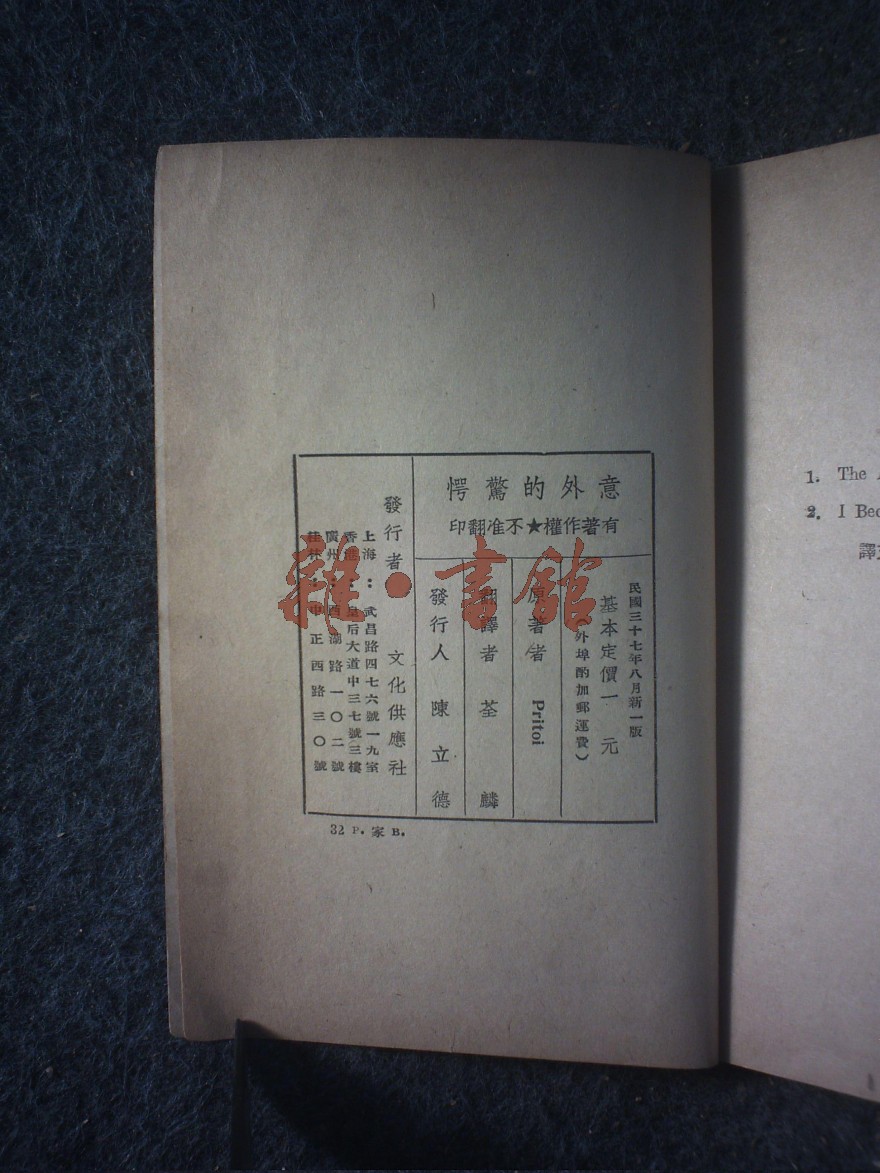 意外的驚愕
有著作權★不准翻印
民國三十七年八月新一版
基本定價一元
(外埠酌加郵運費)
原著者 Pritoi
翻譯者 荃麟
發行人 陳立德
發行者 文化供應社
上海：武昌路四七六號一九室
香港：皇后大道中三七號三樓
廣州：西湖路一〇二號
桂林：中正西路三〇號
32 P. 家 B.
雜·書館
1. The
2. I